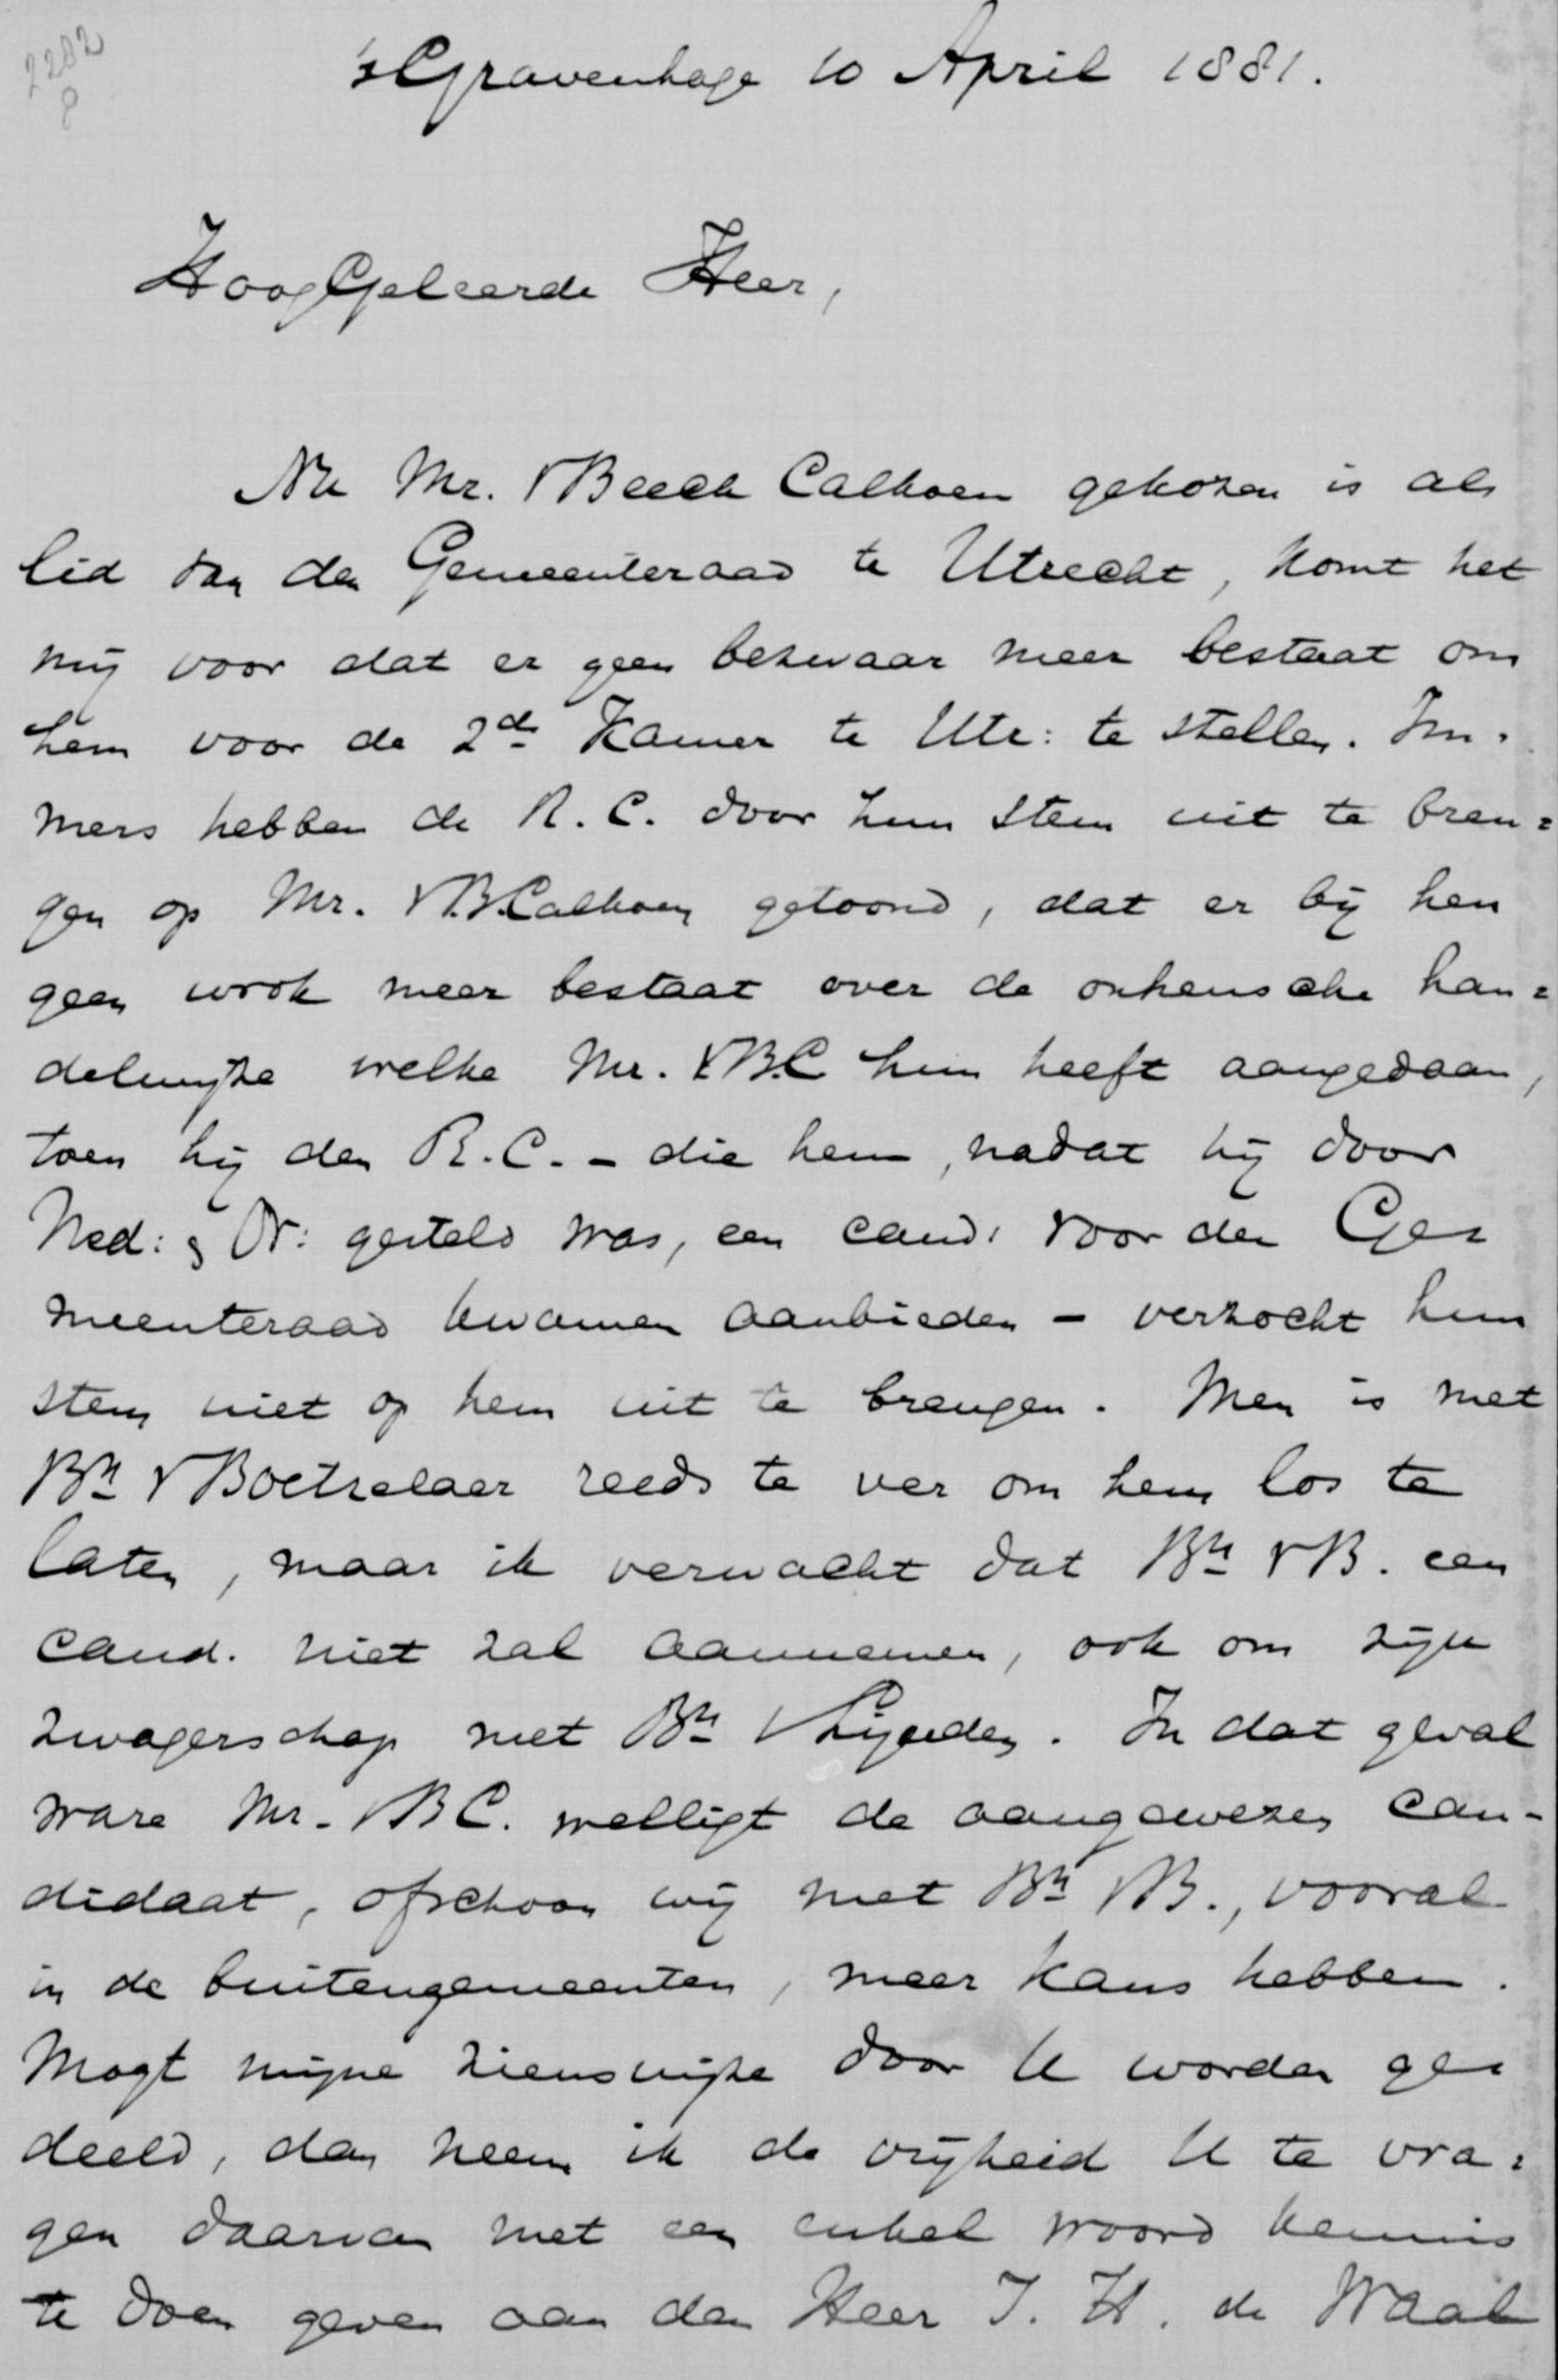 2282
's Gravenhage 10 April 1881.
HoogGeleerde Heer,
Nu Mr. v Beeck Calkoen gekozen is als
lid van den Gemeenteraad te Utrecht, komt het
mij voor dat er geen bezwaar meer bestaat om
hem voor de 2de Kamer te Utr: te stellen. Im-
mers hebben de R.C. door hun stem uit te bren=
gen op Mr. v.B.Calkoen getoond, dat er bij hen
geen wrok meer bestaat over de onheusche han=
delwijze welke Mr. v.B.C hun heeft aangedaan,
toen hij den R.C. - die hem, nadat hij door
Ned: & Or: gesteld was, een cand: voor den Ge=
meenteraad kwamen aanbieden - verzocht hun
stem niet op hem uit te brengen. Men is met
Bn v Boetzelaer reeds te ver om hem los te
laten, maar ik verwacht dat Bn v B. een
cand. niet zal aannemen, ook om zijn
zwagerschap met Bn v Lijnden. In dat geval
ware Mr. v B C. welligt de aangewezen can-
didaat, ofschoon wij met Bn v B., vooral
in de buitengemeenten, meer kans hebben.
Mogt mijne zienswijze door U worden ge=
deeld, dan neem ik de vrijheid U te vra=
gen daarvan met een enkel woord kennis
te doen geven aan den Heer J. H. de Waal